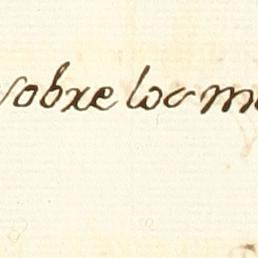 sobre los